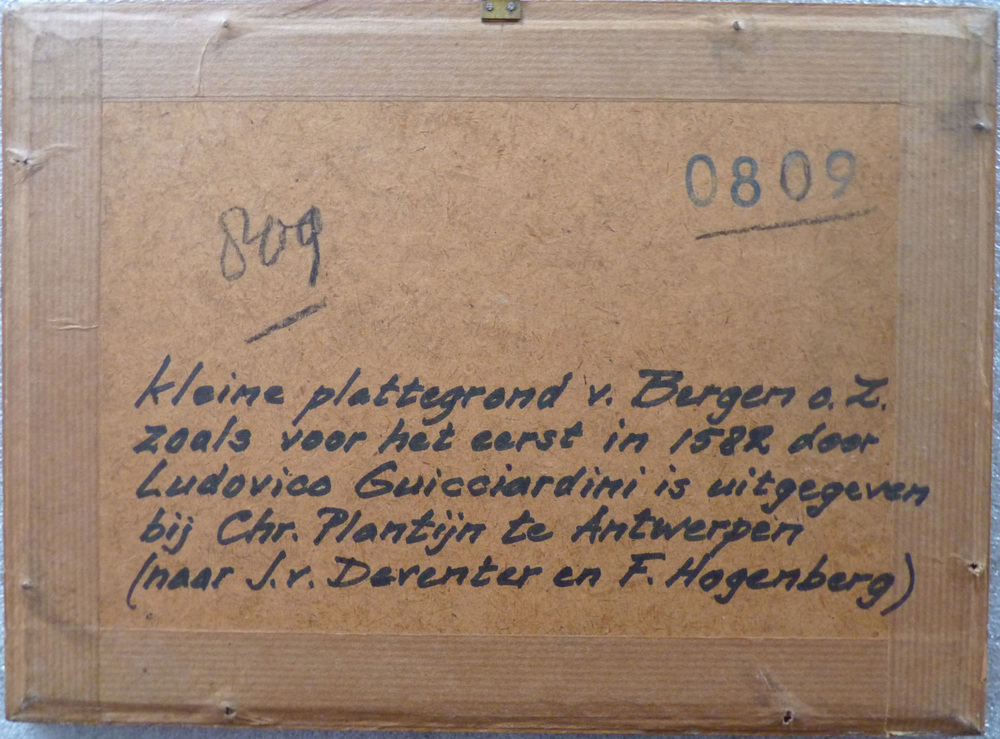 0809
809
kleine plattegrond v. Bergen o. Z.
zoals voor het eerst in 1582 door
Ludovico Guicciardini is uitgegeven
bij Chr. Plantijn te Antwerpen
(naar J. v. Deventer en F. Hogenberg)